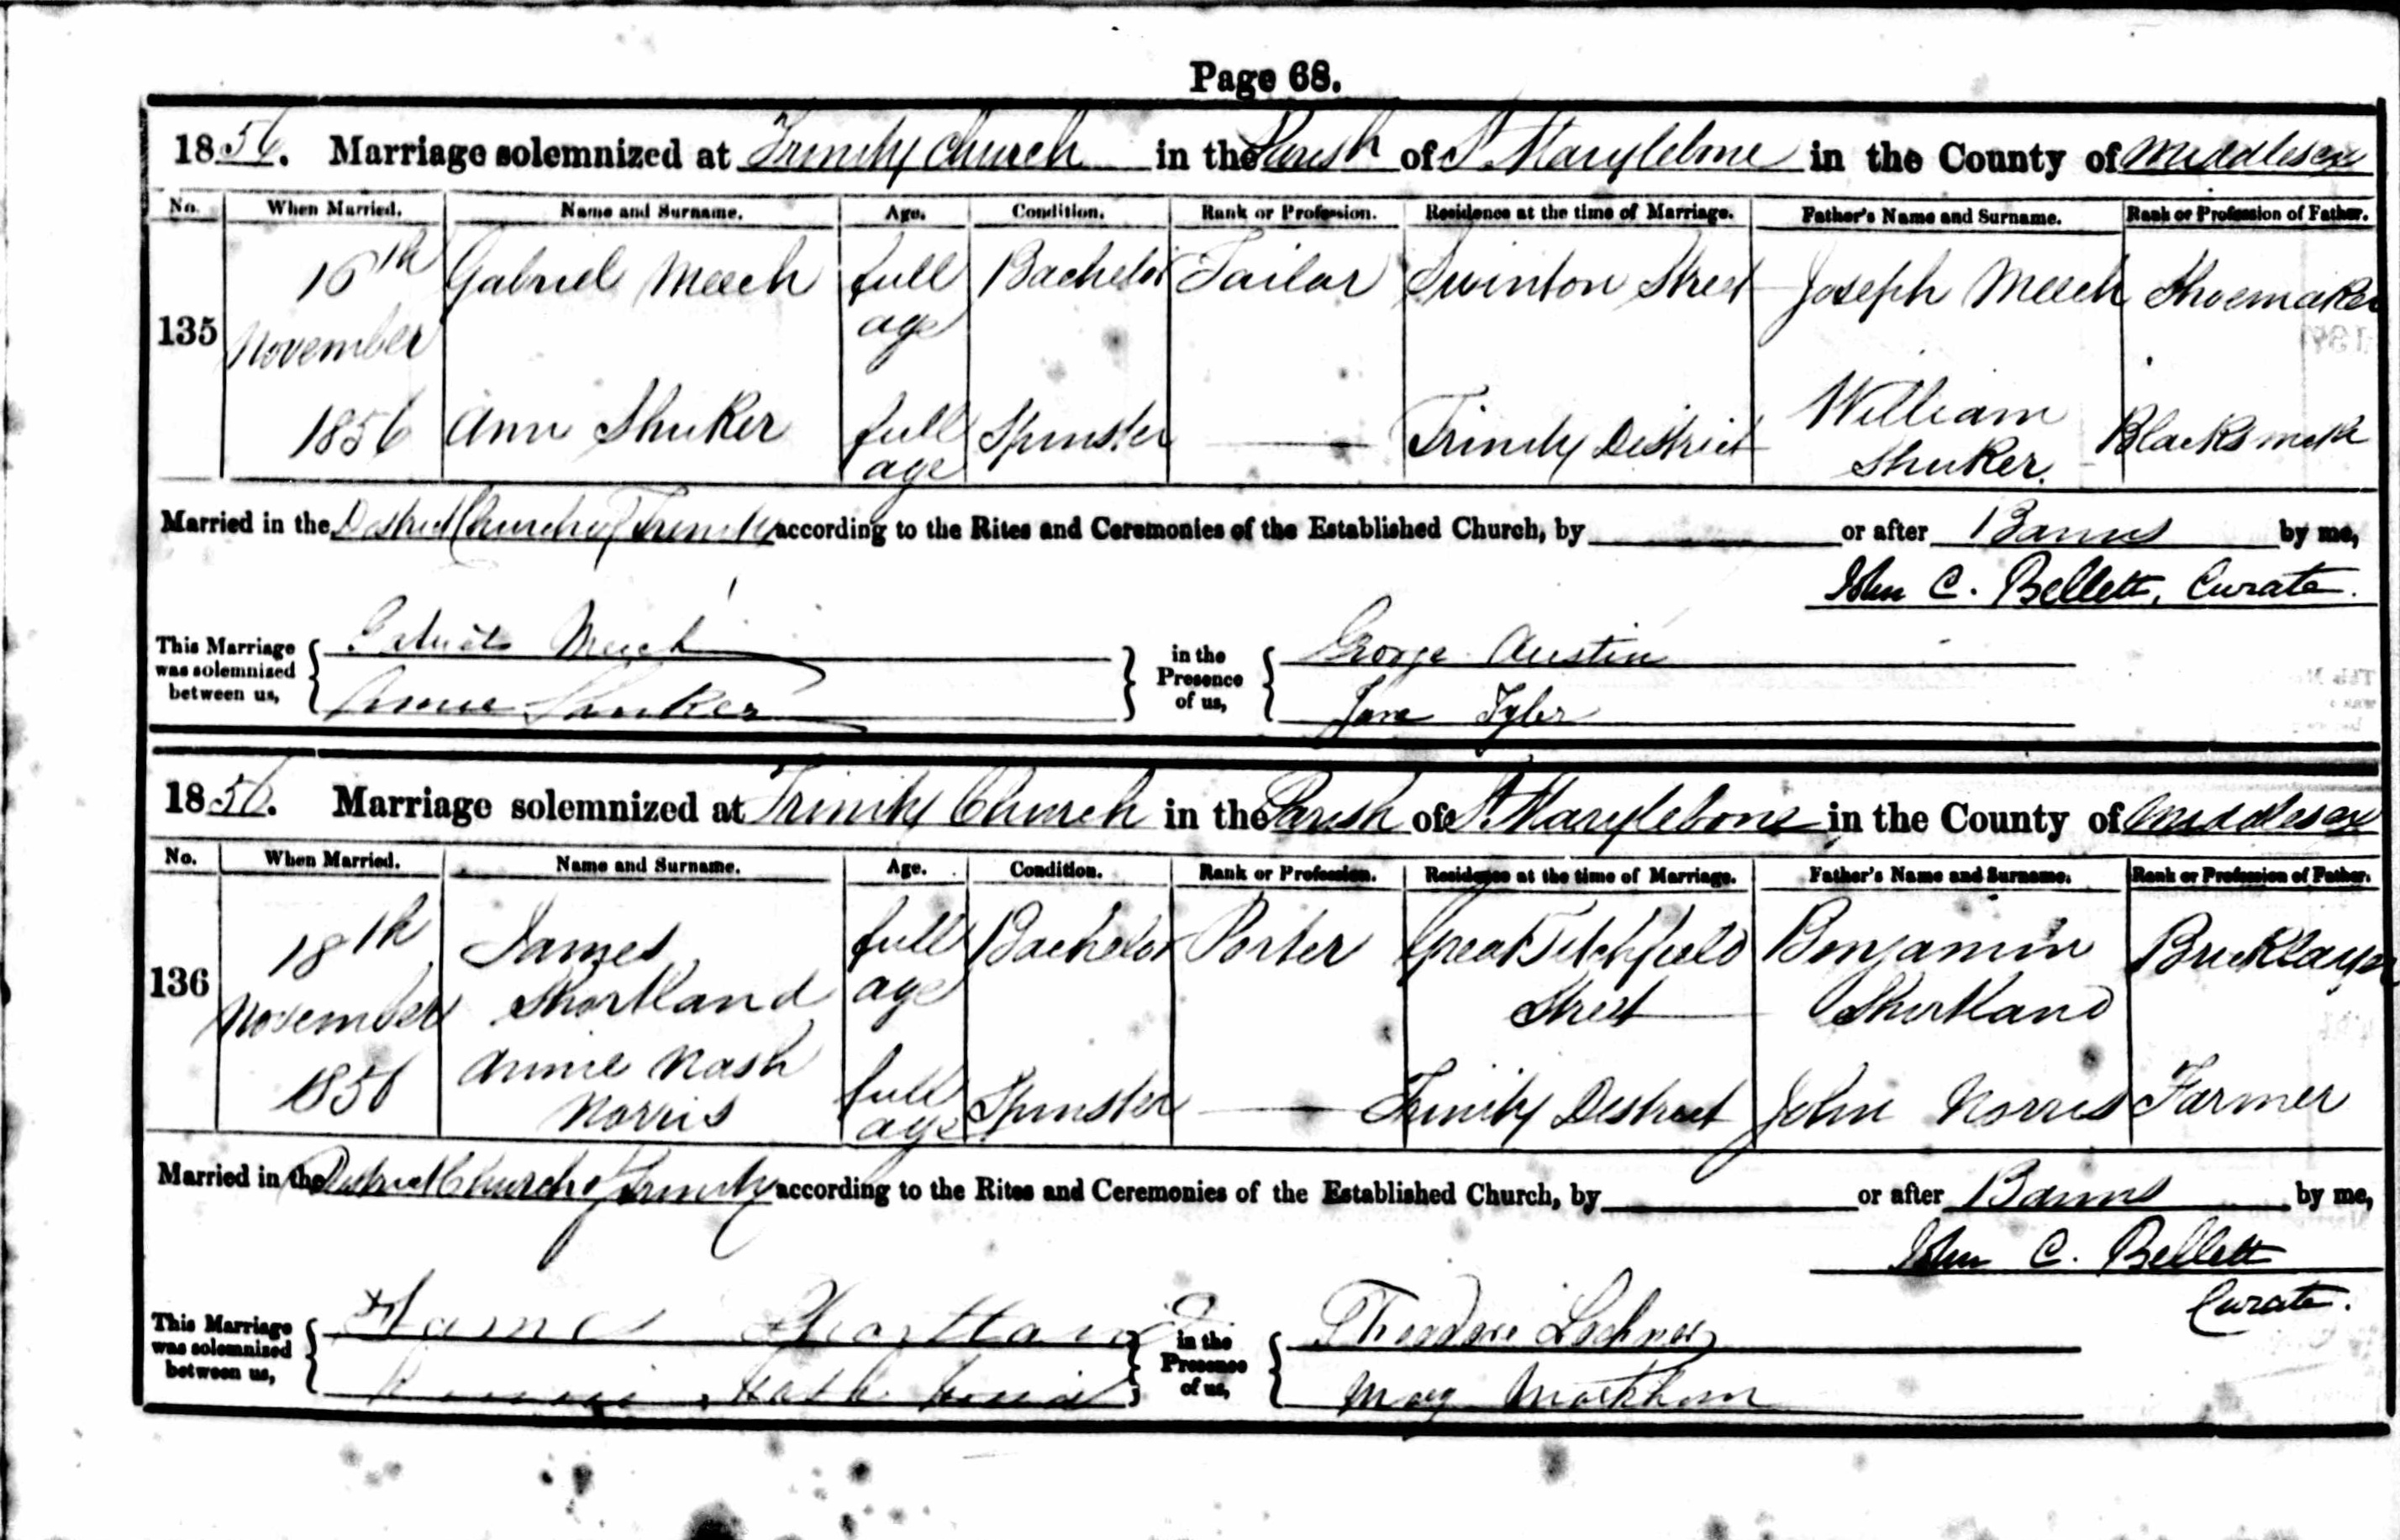 Page 68.
1856. Marriage solemnized at Trinity Church in the Parish of St Marylebone in the County of Middlesex
No. When Married. Name and Surname. Age. Condition. Rank or Profession. Residence at the time of Marriage. Father's Name and Surname. Rank or Profession of Father.
135 16th November 1856 Gabriel Meech full age Bachelor Tailor Swinton Street Joseph Meech Shoemaker
Ann Shuker full age Spinster — Trinity District William Shuker. Blacksmith
Married in the District Church of Trinity according to the Rites and Ceremonies of the Established Church, by ——— or after Banns by me,
John C. Bellett, Curate.
This Marriage was solemnized between us, Meech in the Presence of us, George Austin
Shuker Jane Tyler
1856. Marriage solemnized at Trinity Church in the Parish of St Marylebone in the County of Middlesex
No. When Married. Name and Surname. Age. Condition. Rank or Profession. Residence at the time of Marriage. Father's Name and Surname. Rank or Profession of Father.
136 18th November 1856 James Shortland full age Bachelor Porter Great Titchfield Street Benjamin Shortland Bricklayer
Annie Nash Norris full age Spinster — Trinity District John Norris Farmer
Married in the District Church of Trinity according to the Rites and Ceremonies of the Established Church, by ——— or after Banns by me,
John C. Bellett
Curate.
This Marriage was solemnized between us, James Shortland in the Presence of us, Theodore
Nash Norris Mary Markham